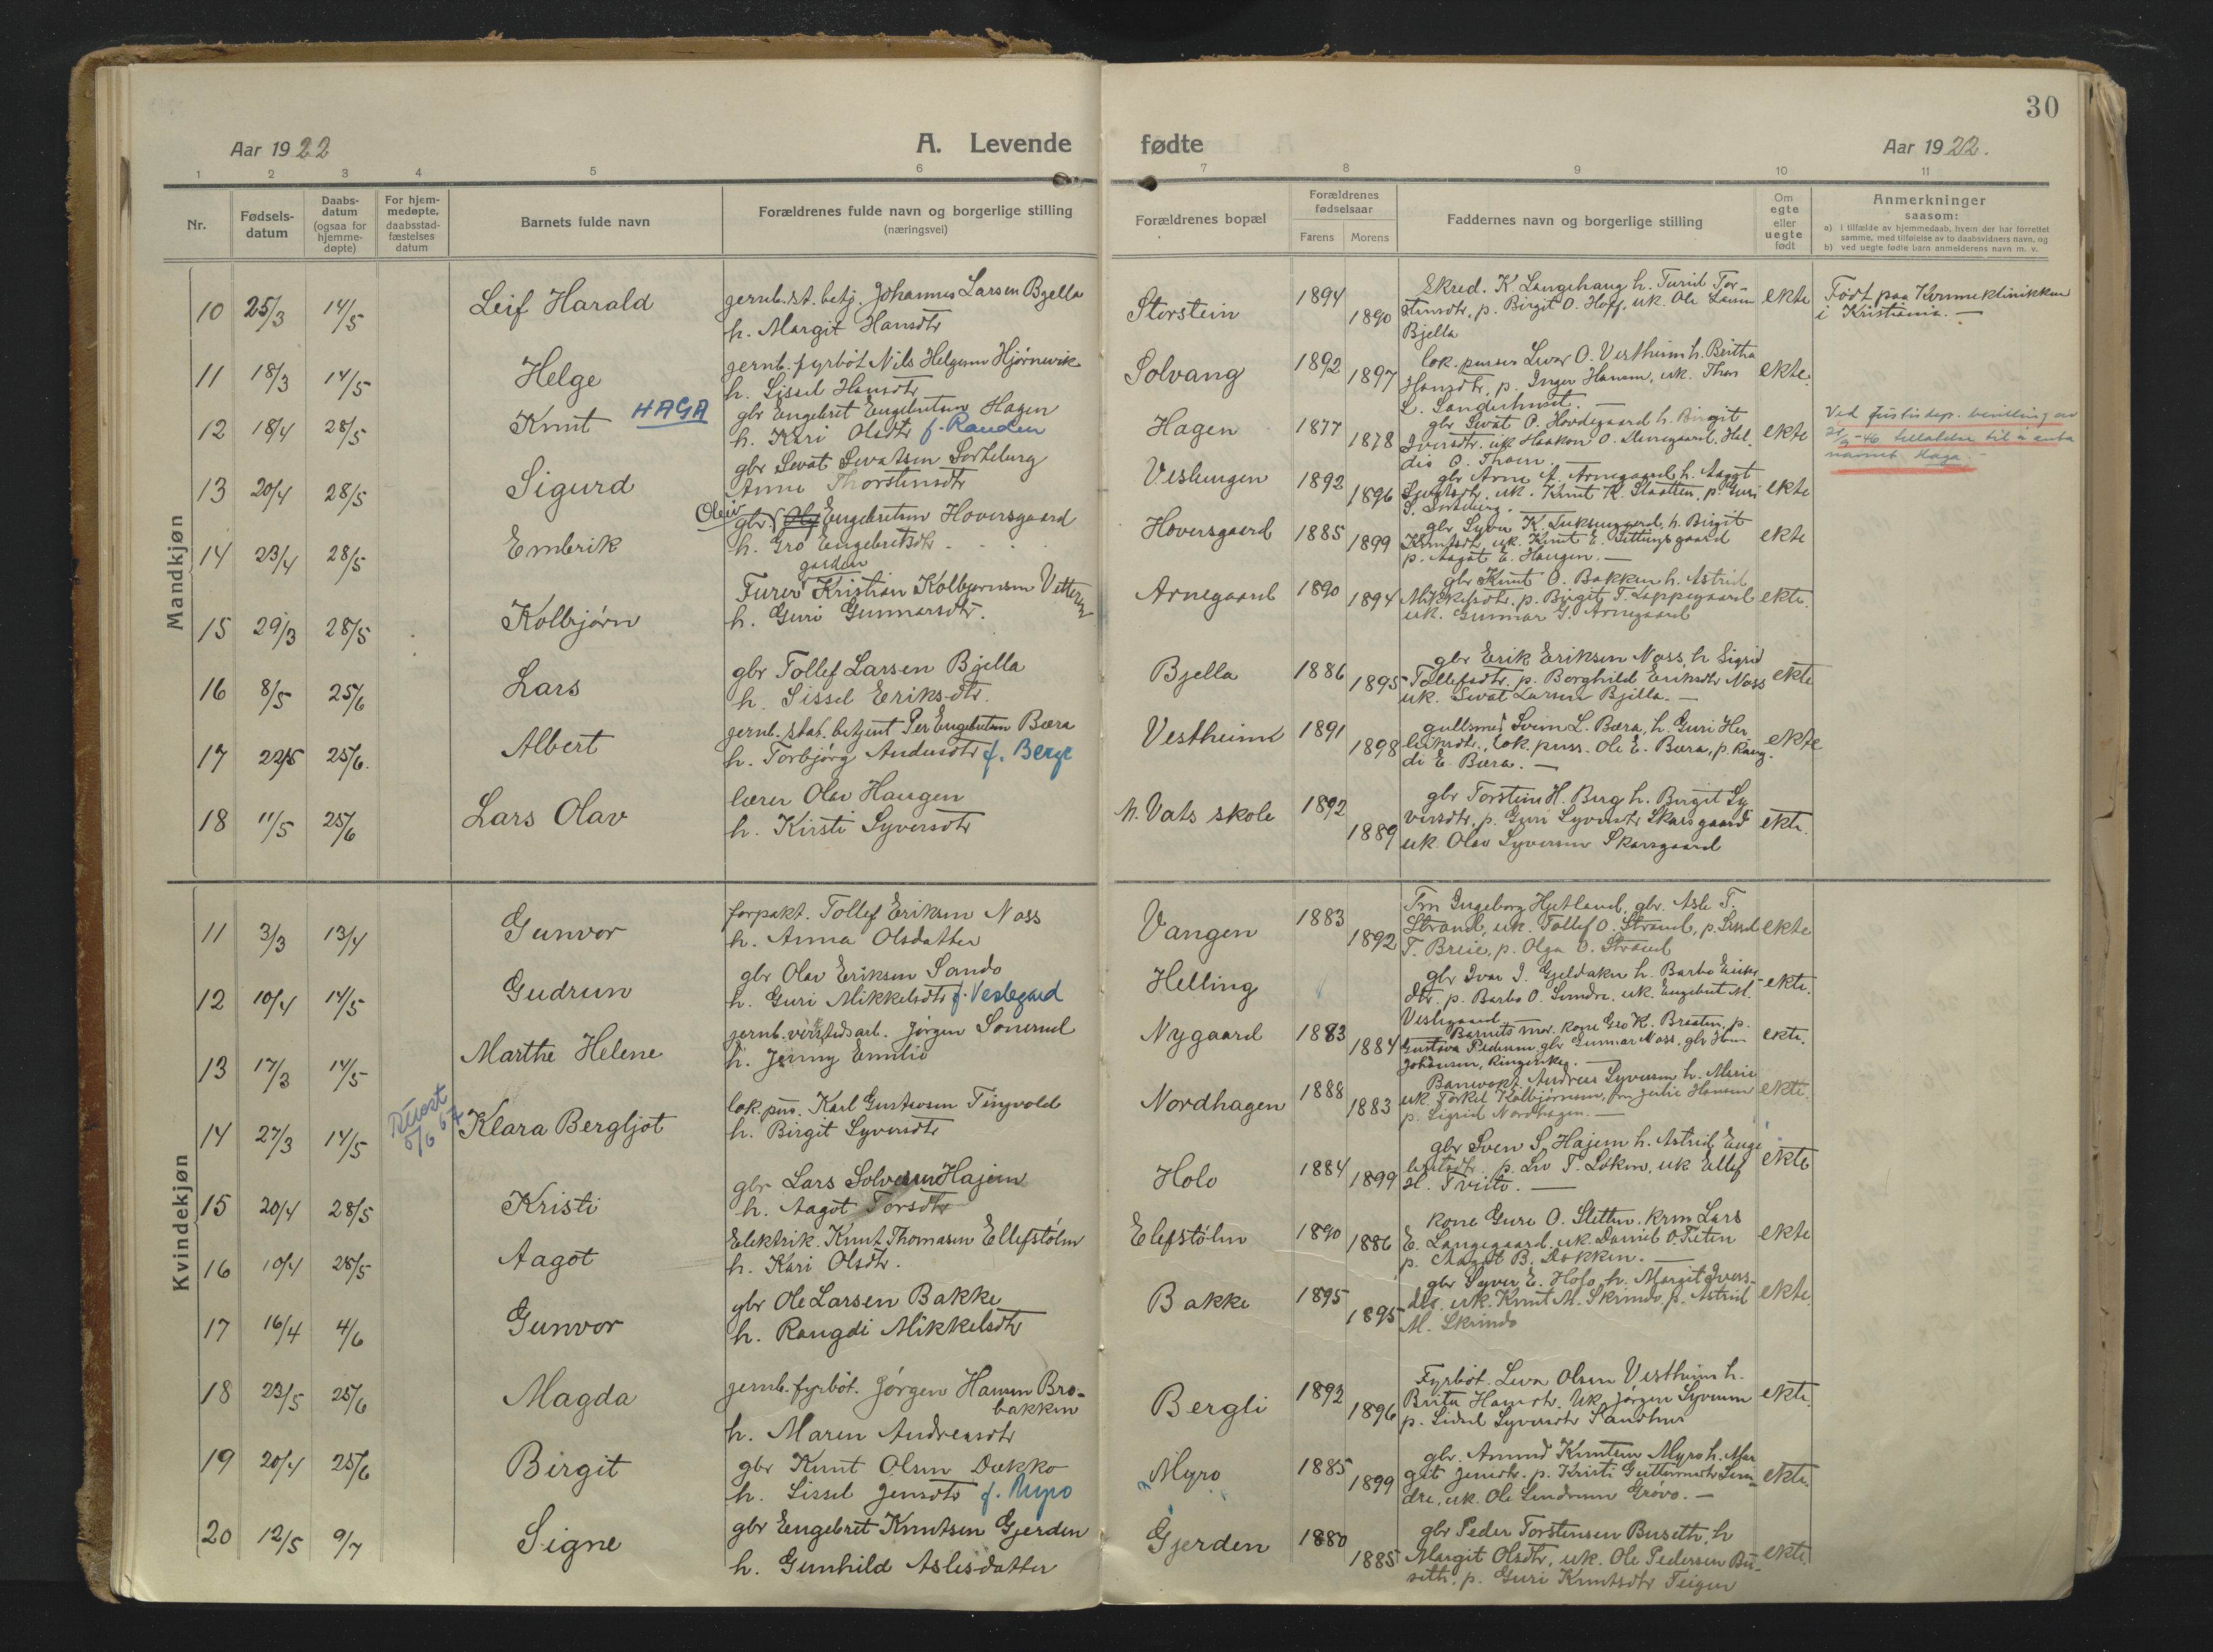 30
Aar 1922
A. Levende fødte
Aar 1922.
1 2 3 4 5 6 7 8 9 10 11
Nr.
Fødsels-
datum
Daabs-
datum
(ogsaa for
hjemme-
døpte)
For hjem-
medøpte,
daabsstad-
fæstelses
datum
Barnets fulde navn
Forældrenes fulde navn og borgerlige stilling
(næringsvei)
Forældrenes bopæl
Forældrenes
fødselsaar
Farens Morens
Faddernes navn og borgerlige stilling
Om
egte
eller
uegte
født
Anmerkninger
saasom:
a) i tilfælde av hjemmedaab, hvem der har forrettet
samme, med tilføielse av to daabsvidners navn, og
b) ved uegte fødte barn anmelderens navn m. v.
Mandkjøn
10 25/3 14/5 Leif Harald
jernb.st. betj. Johannes Larsen Bjella
h. Margit Hansdtr
Storstein 1894 1890
Skred. K. Langehaug h. Turid Tor-
stinsdtr, p. Birgit O. Hoff, uk. Ole Larsen
Bjella
ekte
Født paa Kvinneklinikken
i Kristiania. —
11 18/3 14/5 Helge
jernb. fyrbøt Nils Helgesen Hjørnevik
h. Sissel Hansdtr
Solvang 1892 1897
lok. pusser Levor O. Vestheim h. Beritha
Hansdtr, p. Inger Hansen, uk. Thor
L. Sanderhuset. —
ekte.
12 18/4 28/5 Knut HAGA
gbr Engebret Engebretsen Hagen
h. Kari Olsdtr f. Rauden
Hagen 1877 1878
gbr Sevat O. Hovdegaard h. Birgit
Iversdtr. uk Haakon O. Hal-
dis O. Thoen. —
ekte
Ved justisdep. bevilling av
21/9-46 tillatelse til å anta
navnet Haga. —
13 20/4 28/5 Sigurd
gbr Sevat Sevatsen Sorteberg
Anne Thorstinsdtr
Veslengen 1892 1896
gbr Arne A. Arnegaard h. Aagot
Sevatsdtr, uk. Knut K. Slaatten, p. Guri
S.
ekte
14 23/4 28/5 Embrik
Oleiv
gbr. Engebretsen Hoversgaard
h. Gro Engebretsdtr
Hoversgaard 1885 1899
gbr Syver K. h. Birgit
Knutsdtr, uk. Knut E.
p. Aagot E. Haugen. —
ekte
15 29/3 28/5 Kolbjørn
garden
Furer Kristian Kolbjørnsen Vetteren
h. Guri Gunnarsdtr.
Arnegaard 1890 1894
gbr Knut O. Bakken h. Astrid
Mikkelsdtr. p. Birgit T. Loppegaard
uk. Gunnar G. Arnegaard
ekte.
16 8/5 25/6 Lars
gbr Tollef Larsen Bjella
h. Sissel Eriksdtr.
Bjella 1886 1895
gbr Erik Eriksen Noss, h Sigrid
Tollefsdtr. p. Borghild Eriksdtr Noss
uk. Sevat Larsen Bjella. —
ekte
17 22/5 25/6. Albert
jernb. stas. betjent Per Engebretsen Bæra
h. Torbjørg Andersdtr f. Berge
Vestheim 1891 1898
gullsmed Svein L. Bæra, h. Guri Her
leiksdtr., lok. puss. Ole E. Bæra, p. Rang-
di E. Bæra. —
ekte
18 11/5 25/6 Lars Olav
lærer Olav Haugen
h. Kirsti Syversdtr
N. Vats skole 1892 1889
gbr Torstein H. Berg h. Birgit Sy
versdtr, p. Guri Syversdtr Skarsgaard
uk. Olav Syversen Skarsgaard
ekte.
Kvindekjøn
11 3/3 13/4 Gunvor
forpakt. Tollef Eriksen Noss
h. Anna Olsdatter
Vangen 1883 1892
Frn Ingeborg Hjetland, gbr. Asle T.
Strand, uk. Tollef O. Strand, p. Sissel
T. Breie, p. Olga O. Strand
ekte
12 10/4 14/5 Gudrun
gbr Olav Eriksen Sando
h. Guri Mikkelsdtr f. Veslegard
Helling
gbr Ivar I. Gjeldaker h. Barbo Eriks-
dtr. p. Barbo O. Sundre, uk. Engebret M.
Veslegaard
ekte.
13 17/3 14/5 Marthe Helene
jernb. verkstedsarb. Jørgen Sonerud
h. Jenny Emilie
Nygaard 1883 1884
Barnets mor. kone Gro K. Braaten, p.
Gustava Pedersen, gbr Gunnar Noss, gbr
Johansen, Ringerike. —
ekte.
14 27/3 14/5 Klara Bergljot
Attest
5/6 67
lok. pus. Karl Gustavsen Tingvold
h. Birgit Syversdtr
Nordhagen 1888 1883
Banevokt. Andreas Syversen h. Marie
uk. Torkel Kolbjørnsen, frn Julie Hansen
p. Sigrid Nordhagen. —
ekte.
15 20/4 28/5 Kristi
gbr Lars Solvesen Hajem
h. Aagot Torsdtr
Holo 1884 1899
gbr Sven S. Hajem h. Astrid Enge
bretsdtr. p. Liv T. Løken, uk Ellef
H. Tveito. —
ekte
16 10/4 28/5 Aagot
Elektrik. Knut Thomasen Ellefstølen
h. Kari Olsdtr.
Elefstølen 1890 1886
kone Guri O. Sletten. krm Lars
E. Langegaard, uk. Daniel O. Tuten
p. Aagot B. Dokken. —
ekte
17 16/4 4/6 Gunvor
gbr Ole Larsen Bakke
h. Rangdi Mikkelsdtr
Bakke 1895 1895
gbr Syver E. Holo, h. Margit Ivers-
dtr. uk. Knut M. Skrindo, p. Astrid
M. Skrindo
ekte.
18 23/5 25/6 Magda
jernb. fyrbøt. Jørgen Hansen Bro-
bakken
h. Maren Andreasdtr
Bergli 1892 1896
Fyrbøt. Levor Olsen Vestheim h.
Berita Hansdtr. Uk. Jørgen Syversen
p. Sidsel Syversdtr Sandhus
ekte.
19 20/4 25/6 Birgit
gbr Knut Olsen Dokko
h. Sissel Jensdtr f. Myro
Myro 1885 1899
gbr. Amund Knutsen Myro h. Mar
git Jensdtr. p. Kristi Guttormsdtr Sun-
dre, uk. Ole Sendresen Grøvo. —
ekte.
20 12/5 9/7 Signe
gbr Engebret Knutsen Gjerden
h. Gunhild Aslesdatter
Gjerden 1880 1885
gbr Peder Torstensen Buseth, h
Margit Olsdtr, uk. Ole Pedersen Bu-
seth, p. Guri Knutsdtr Teigen
ekte.